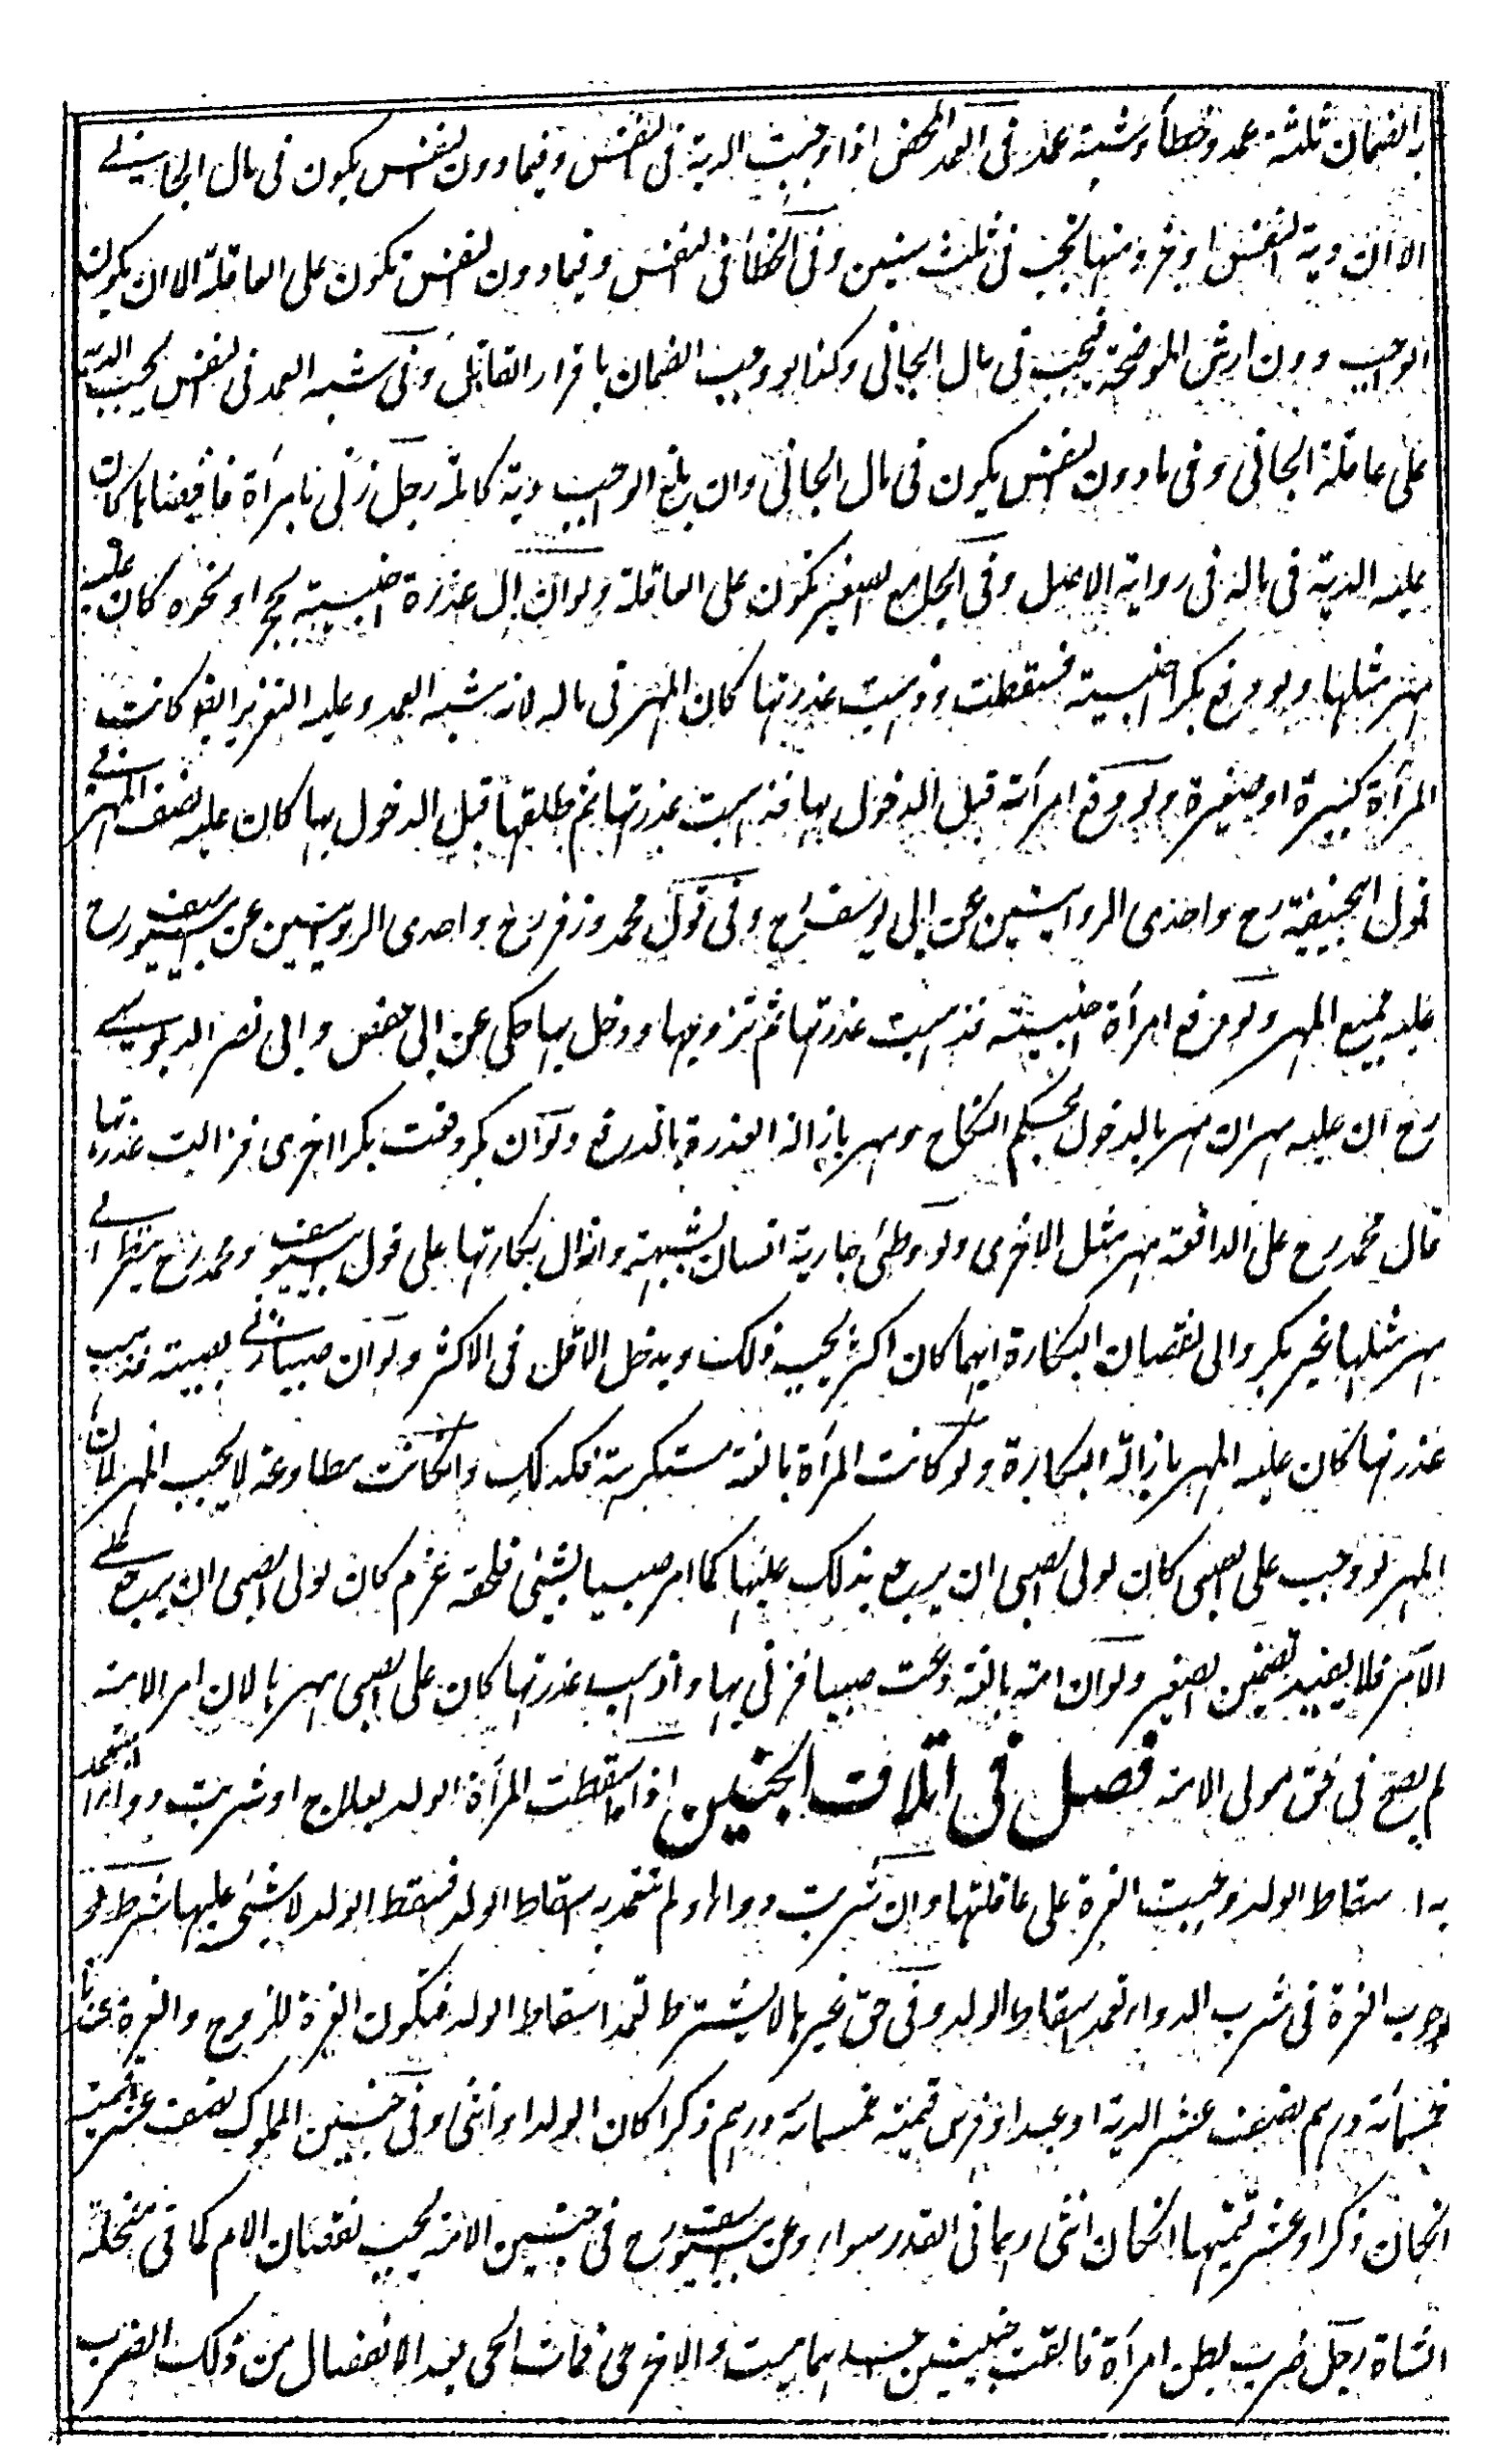 بالضمان ثلثة عمد وخطأ وشبه عمد ففى العمد المحض اذا وجبت الدية فى النفس وفيما دون النفس يكون فى مال الجانى
الا ان دية النفس او جزء منها تجب فى ثلث سنين وفى الخطأ فى النفس وفيما دون النفس تكون على العاقلة الا ان يكون
الواجب دون ارش الموضحة فيجب فى مال الجانى وكذا لو وجب الضمان باقرار القاتل وفى شبه العمد فى النفس يجب الدية
على عاقلة الجانى وفى ما دون النفس يكون فى مال الجانى وان بلغ الواجب دية كاملة رجل زنى بامرأة فافضاها كان
عليه الدية فى ماله فى رواية الاصل وفى الجامع الصغير تكون على العاقلة ولو ازال عذرة اجنبية بحجر او نحوه كان عليه
مهر مثلها ولو دفع بكرا اجنبية فسقطت وذهبت عذرتها كان المهر فى ماله لانه شبه العمد وعليه التعزير ايضا كانت
المرأة كبيرة او صغيرة ولو دفع امرأته قبل الدخول بها فذهبت عذرتها ثم طلقها قبل الدخول بها كان عليه نصف المهر فى
قول ابيحنيفة رح واحدى الروايتين عن ابى يوسف رح وفى قول محمد وزفر رح واحدى الروايتين عن ابييوسف رح
عليه جميع المهر ولو دفع امرأة اجنبية فذهبت عذرتها ثم تزوجها ودخل بها حكى عن ابى حفص وابى نصر الدبوسى
رح ان عليه مهران مهر بالدخول بحكم النكاح ومهر بازالة العذرة بالدفع ولو ان بكرا دفعت بكرا اخرى فزالت عذرتها
قال محمد رح على الدافعة مهر مثل الاخرى ولو وطئ جارية انسان بشبهة وازال بكارتها على قول ابييوسف ومحمد رح ينظر الى
مهر مثلها غير بكر والى نقصان البكارة ايهما كان اكثر يجب ذلك ويدخل الاقل فى الاكثر ولو ان صبيا زنى بصبية فذهب
عذرتها كان عليه المهر بازالة البكارة ولو كانت المرأة بالغة مستكرهة فكذلك وانكانت مطاوعة لا يجب المهر لان
المهر لو وجب على الصبى كان لولى الصبى ان يرجع بذلك عليها كما امر صبيا بشئ فلحقه غرم كان لولى الصبى ان يرجع على
الآمر فلا يفيد تضمين الصغير ولو ان امة بالغة دعت صبيا فزنى بها واذهب عذرتها كان على الصبى مهرها لان امر الامة
لم يصح فى حق مولى الامة فصل فى اتلاف الجنين اذا اسقطت المرأة الولد بعلاج او شربت دواء تتعمد
به اسقاط الولد وجبت الغرة على عاقلتها وان شربت دواء ولم تتعمد به اسقاط الولد فسقط الولد لا شئ عليها شرط
وجوب الغرة فى شرب الدواء تعمد اسقاط الولد وفى حق غيرها لا يشترط تعمد اسقاط الولد فتكون الغرة للزوج والغرة عندنا
خمسمائة درهم نصف عشر الدية او عبد او فرس قيمته خمسمائة درهم ذكرا كان الولد او انثى وفى جنين المملوك نصف عشر قيمته
انكان ذكرا وعشر قيمتها انكان انثى وهما فى القدر سواء وعن ابييوسف رح فى جنين الامة يجب نقصان الام كما فى
الشاة رجل ضرب بطن امرأة فالقت جنينين احدهما ميت والاخر حى فمات الحى بعد الانفصال من ذلك الضرب